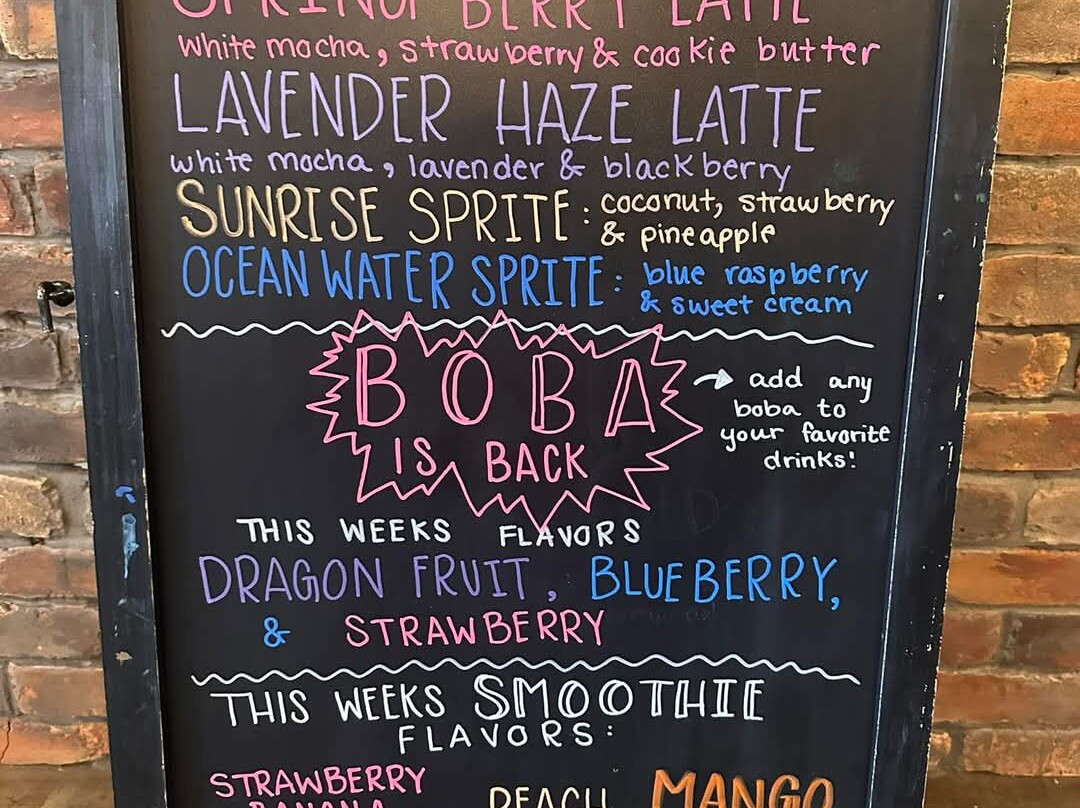 SPRING BERRY LATTE
white mocha, strawberry & cookie butter
LAVENDER HAZE LATTE
white mocha, lavender & blackberry
SUNRISE SPRITE: coconut, strawberry
& pineapple
OCEAN WATER SPRITE: blue raspberry
& sweet cream
BOBA
IS BACK
→ add any
boba to
your favorite
drinks!
THIS WEEKS FLAVORS
DRAGON FRUIT, BLUEBERRY,
& STRAWBERRY
THIS WEEKS SMOOTHIE
FLAVORS:
STRAWBERRY
BANANA PEACH MANGO